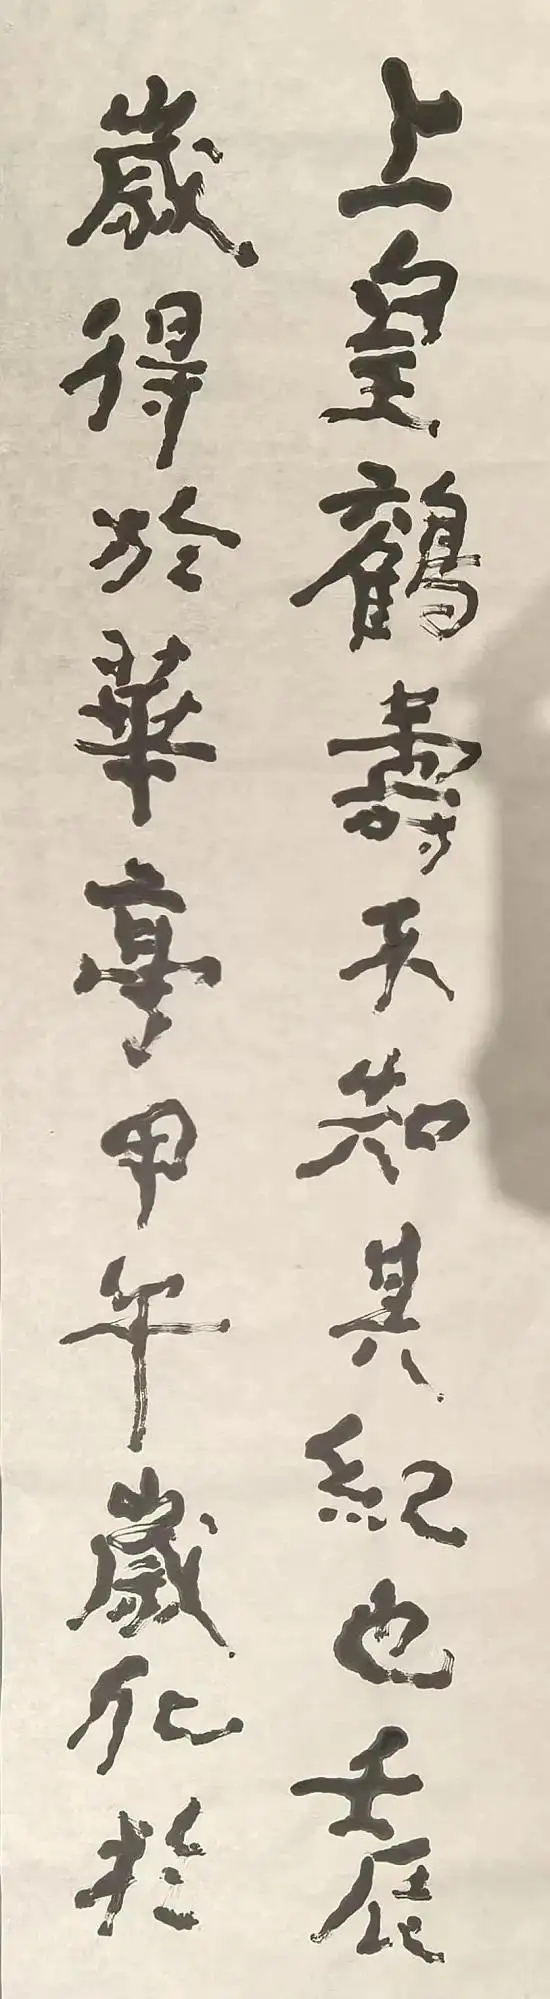 上皇鶴壽不知其紀也壬辰
歲得於華亭甲午歲化於